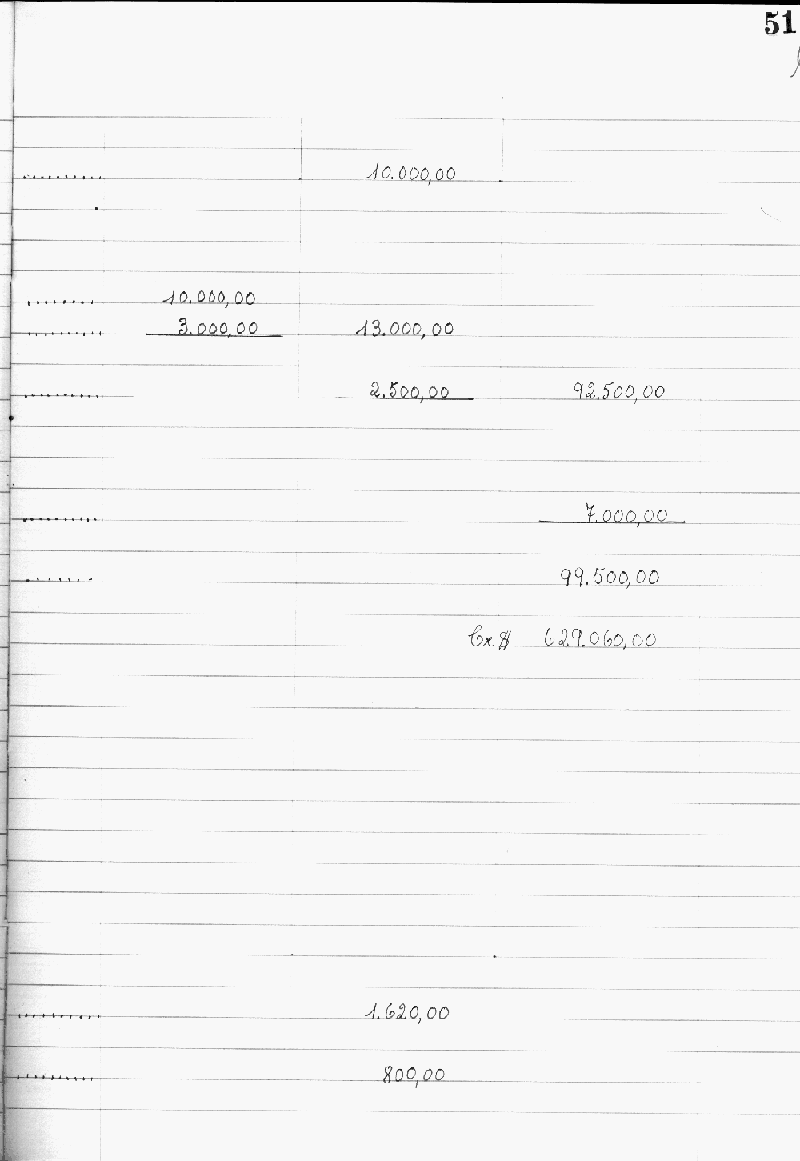 51
.......... 10.000,00
....... 10.000,00
.......... 3.000,00 13.000,00
.......... 2.500,00 92.500,00
.......... 7.000,00
....... 99.500,00
Cr.$ 629.060,00
.......... 1.620,00
.......... 800,00